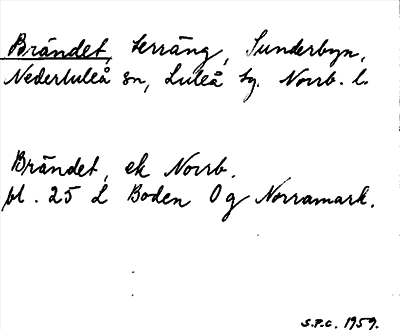 Brändet, terräng, Sunderbyn,
Nederluleå sn, Luleå tg. Norrb. l.
Brändet, ek Norrb.
bl. 25 L Boden Og Norramark.
S.P.C. 1959.